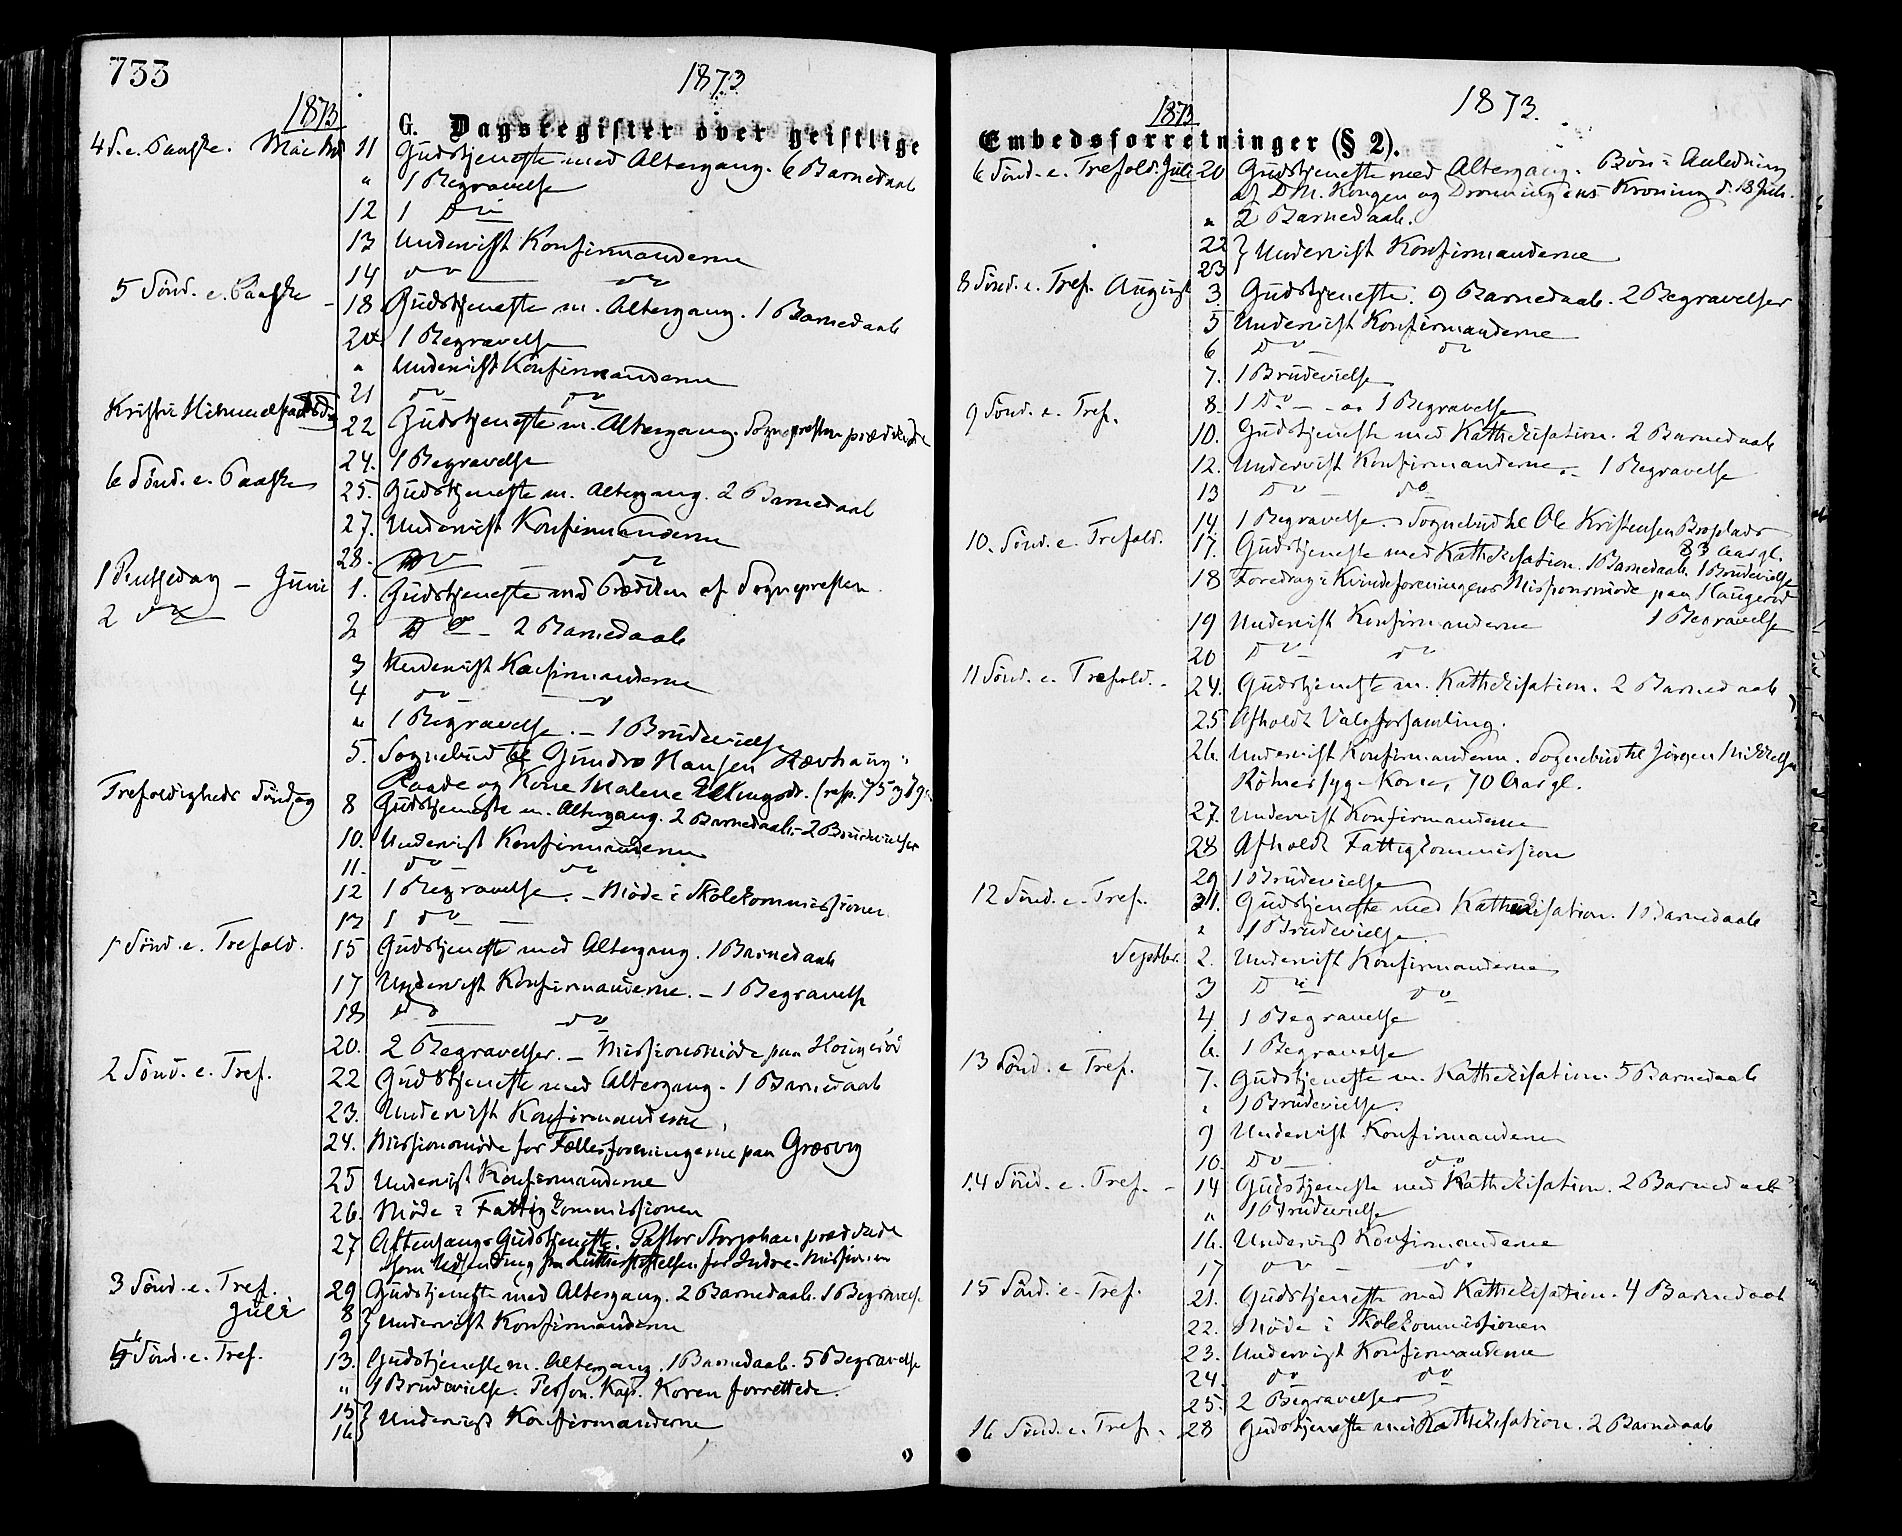 733
1873
1873
G. Dagsregister over geistlige
4 S. e. Paaske. Mai 11 Gudstjeneste med Altergang. 6 Barnedaab
" 1 Begravelse
12 1 Do
13 Undervist Konfirmanderne
14 do — do
5 Sønd. e. Paaske – 18 Gudstjeneste m. Altergang. 1 Barnedaab
20 1 Begravelse
" Undervist Konfirmanderne
21 do do
Kristi Himmelfartsdag 22 Gudstjeneste m. Altergang. Sognepresten prædikede
24. 1 Begravelse
6 Sønd. e. Paaske 25. Gudstjeneste m. Altergang. 2 Barnedaab
27. Undervist Konfirmanderne
28. Do — do
1 Pintsedag – Juni 1. Gudstjeneste med Prædiken af Sognepresten.
2 do 2 Do – 2 Barnedaab
3 Undervist Konfirmanderne
4 do — do
" 1 Begravelse. – 1 Brudevielse
5. Sognebud til Gunder Hansen Rævhaug i
Raade og Kone Malene (resp. 75 og 79
Trefoldigheds Søndag 8 Gudstjeneste m. Altergang. 2 Barnedaab – 2 Brudevielser
10. Undervist Konfirmanderne
11. do do
12 1 Begravelse. – Møde i Skolekommissionen
13 1 do –
1 Sønd. e. Trefold. 15 Gudstjeneste med Altergang. 1 Barnedaab
17 Undervist Konfirmanderne. – 1 Begravelse
18 do — do
20. 2 Begravelser. – Missionsmøde paa Haugerød
2 Sønd. e. Tref. 22 Gudstjeneste med Altergang. 1 Barnedaab
23. Undervist Konfirmanderne
24. Missionsmøde for Fællesforeningerne paa Græsvig
25 Undervist Konfirmanderne
26. Møde i Fattigkommissionen
27 Aftensangs-Gudstjeneste. Pastor Storjohan prædikede
som Udsending fra Lutherstiftelsen for Indre-Missionen
3 Sønd. e. Tref. 29 Gudstjeneste med Altergang. 2 Barnedaab. 1 Begravelse.
Juli 8 } Undervist Konfirmanderne
9
5 Sønd. e. Tref. 13. Gudstjeneste m. Altergang. 1 Barnedaab. 5 Begravelse
" 1 Brudevielse. Person. Kap. Koren forrettede.
15 } Undervist Konfirmanderne
16
1873
1873.
Embedsforretninger (§ 2).
6 Sønd. e. Trefold. Juli 20 Gudstjeneste med Altergang. Bøn i Anledning
af D. M. Kongen og Dronningens Kroning d. 18 Juli.
" 2 Barnedaab.
22 } Undervist Konfirmanderne
23
8 Sønd. e. Tref. August 3. Gudstjeneste. 9 Barnedaab. 2 Begravelser
5 Undervist Konfirmanderne
6 Do – do
7. 1 Brudevielse
8. 1 Do – 1 Begravelse
9 Sønd. e. Tref. 10. Gudstjeneste med Kathekisation. 2 Barnedaab
12. Undervist Konfirmanderne. – 1 Begravelse
13 Do – do
14 1 Begravelse. – Sognebud til Ole Kristensen Broplads
83 Aar gl.
10. Sønd. e. Trefold. 17. Gudstjeneste med Kathekisation. 1 Barnedaab. 1 Brudevielse
18 Foredrag i Kvindeforeningens Missionsmøde paa Haugerød
19 Undervist Konfirmanderne 1 Begravelse
20 Do – do
11 Sønd. e. Trefold. – 24. Gudstjeneste m. Kathekisation. 2 Barnedaab
25 Afholdt Valgforsamling.
26. Undervist Konfirmanderne. Sognebud til Jørgen Mikkelsen
syge Kone, 70 Aar gl.
27. Undervist Konfirmanderne
28 Afholdt Fattigkommission
29 1 Brudevielse
12 Sønd. e. Tref. 31. Gudstjeneste med Kathekisation. 1 Barnedaab
" 1 Brudevielse
Septbr. 2. Undervist Konfirmanderne
3 Do do
4. 1 Begravelse
6. 1 Begravelse
13 Sønd. e Tref. 7. Gudstjeneste m. Kathekisation. 5 Barnedaab
" 1 Brudevielse.
9 Undervist Konfirmanderne
10. Do – do
14 Sønd. e. Tref. – 14 Gudstjeneste med Kathekisation. 2 Barnedaab
" 1 Brudevielse
16. Undervist Konfirmanderne
17 do – do
15 Sønd. e. Tref. 21. Gudstjeneste med Kathekisation. 4 Barnedaab
22. Møde i Skolekommissionen
23. Undervist Konfirmanderne
24. do do
25. 2 Begravelser
16 Sønd. e. Tref. 28 Gudstjeneste med Kathekisation. 2 Barnedaab